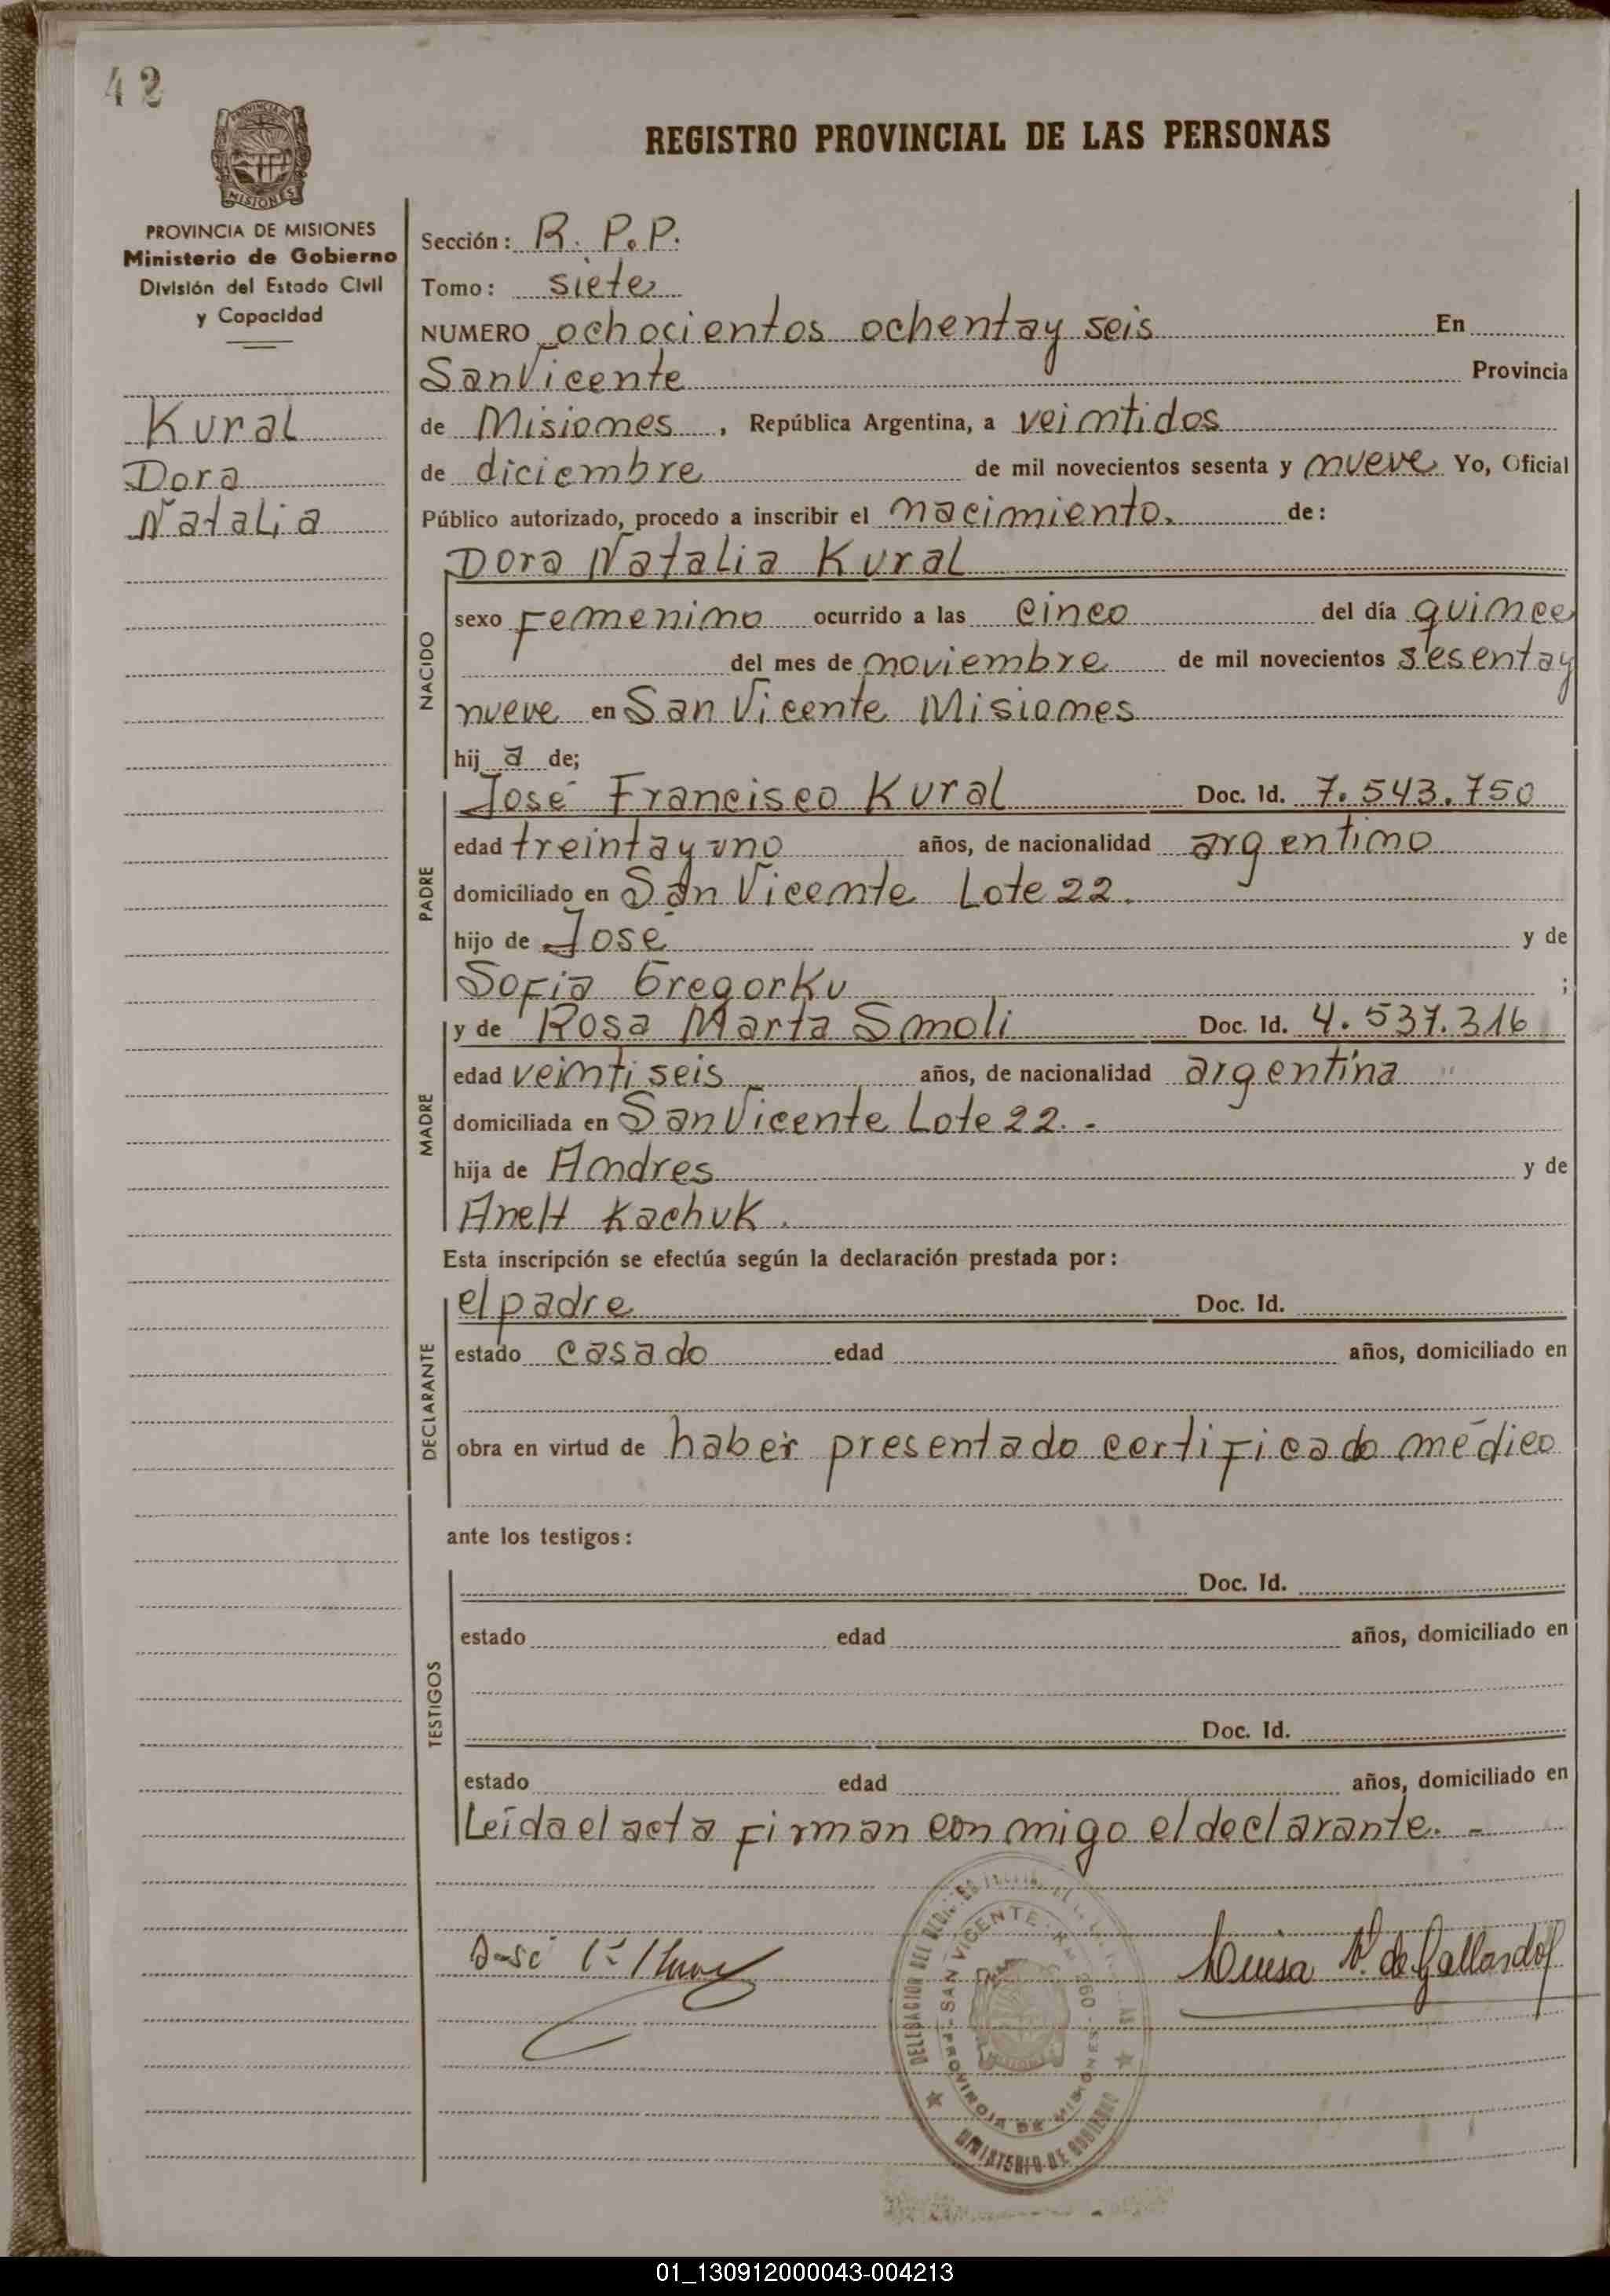 42
PROVINCIA DE MISIONES
REGISTRO PROVINCIAL DE LAS PERSONAS
PROVINCIA DE MISIONES
Ministerio de Gobierno
División del Estado Civil
y Capacidad
Kural
Dora
Natalia
Sección: R. P. P.
Tomo: siete
NUMERO ochocientos ochenta y seis En
San Vicente Provincia
de Misiones, República Argentina, a veintidos
de diciembre de mil novecientos sesenta y nueve Yo, Oficial
Público autorizado, procedo a inscribir el nacimiento. de:
Dora Natalia Kural
NACIDO
sexo Femenino ocurrido a las cinco del día quince
del mes de noviembre de mil novecientos sesenta y
nueve en San Vicente Misiones
hij a de;
PADRE
José Francisco Kural Doc. Id. 7.543.750
edad treinta y uno años, de nacionalidad argentino
domiciliado en San Vicente Lote 22.
hijo de José y de
Sofia Gregorku ;
MADRE
y de Rosa Marta Smoli Doc. Id. 4.537.316
edad veinti seis años, de nacionalidad argentina
domiciliada en San Vicente Lote 22. -
hija de Andres y de
Kachuk.
Esta inscripción se efectúa según la declaración prestada por:
DECLARANTE
el padre Doc. Id.
estado casado edad años, domiciliado en
obra en virtud de haber presentado certificado médico
ante los testigos:
TESTIGOS
Doc. Id.
estado edad años, domiciliado en
Doc. Id.
estado edad años, domiciliado en
Leída el acta firman conmigo el declarante. -
José
Luisa V. de Gallardo
DELEGACION DEL
SAN VICENTE
PROVINCIA DE MISIONES
MINISTERIO DE GOBIERNO
01_130912000043-004213